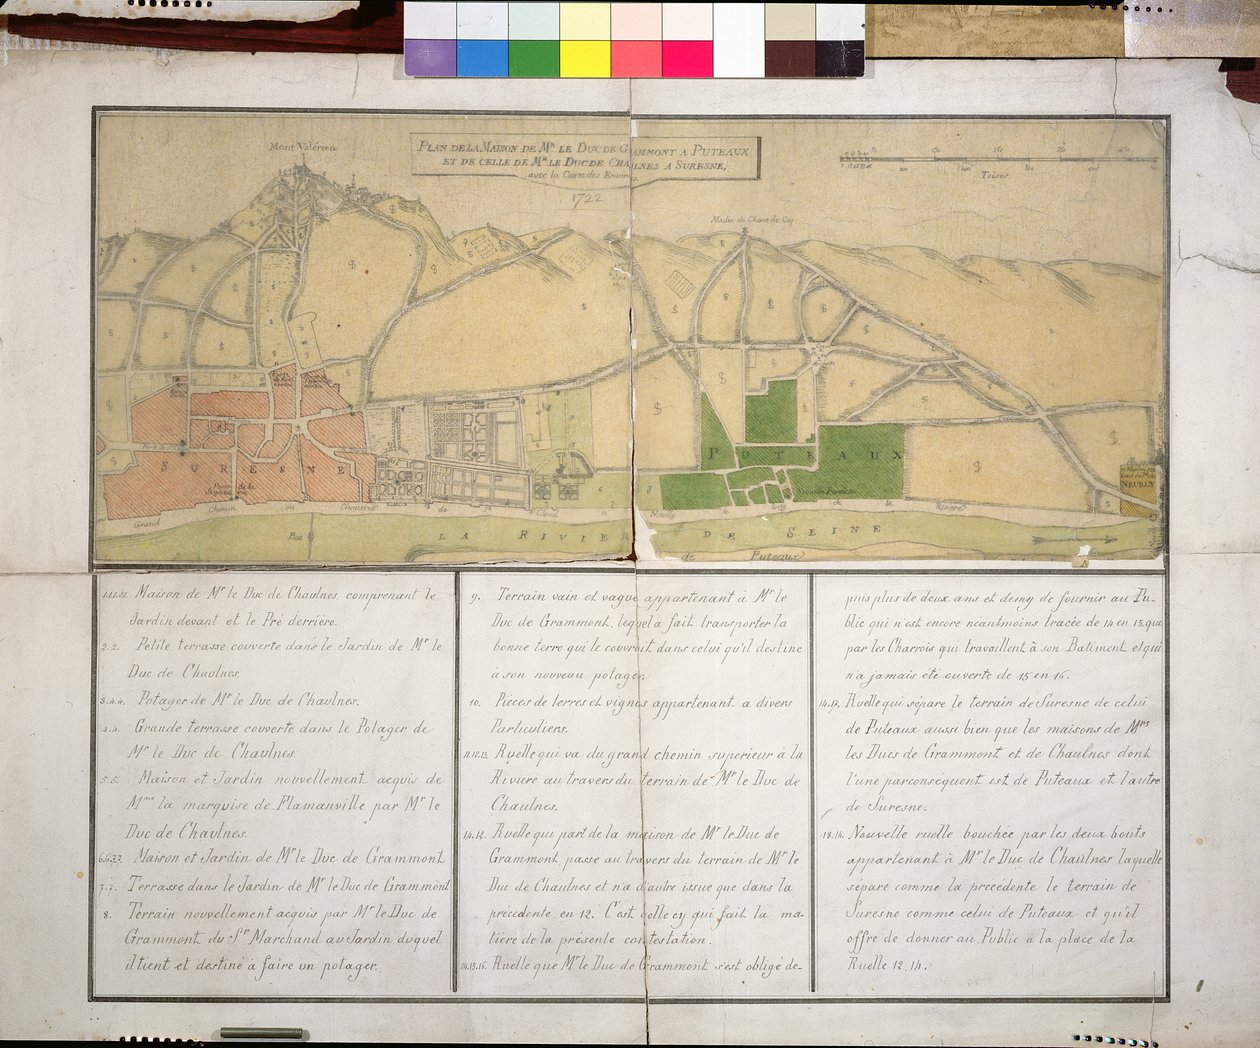 PLAN DE LA MAISON DE Mr. LE DUC DE GRAMMONT A PUTEAUX
ET DE CELLE DE Mr. LE DUC DE CHAULNES A SURESNE,
avec la Carte des Environs.
1722
Mont Valérien
Moulin de Chant de Coq
Toises
SURESNE
PUTEAUX
NEUILLY
Grand Chemin ou Chaussée de St Cloud à Neuilly le long de la Rivière
Bac
LA RIVIERE DE SEINE
de Puteaux
1.1.1.2.2. Maison de Mr le Duc de Chaulnes, comprenant le
Jardin devant et le Pré derrière.
2.2. Petite terrasse couverte dans le Jardin de Mr le
Duc de Chaulnes.
3.4.4. Potager de Mr le Duc de Chaulnes.
4.4. Grande terrasse couverte dans le Potager de
Mr le Duc de Chaulnes.
5.5. Maison et Jardin nouvellement acquis de
Mme la marquise de Flamanville par Mr le
Duc de Chaulnes.
6.6.7.7. Maison et Jardin de Mr le Duc de Grammont
7.7. Terrasse dans le Jardin de Mr le Duc de Grammont
8. Terrain nouvellement acquis par Mr le Duc de
Grammont du Sr Marchand au Jardin duquel
il tient et destiné à faire un potager.
9. Terrain vain et vague appartenant à Mr le
Duc de Grammont, lequel a fait transporter la
bonne terre qui le couvroit dans celui qu'il destine
à son nouveau potager.
10. Pièces de terres et vignes appartenant a divers
Particuliers.
11.12.13. Ruelle qui va du grand chemin superieur à la
Riviere au travers du terrain de Mr le Duc de
Chaulnes.
14.12. Ruelle qui part de la maison de Mr le Duc de
Grammont passe au travers du terrain de Mr le
Duc de Chaulnes et n'a d'autre issue que dans la
precedente en 12. C'est celle cy qui fait la ma-
tière de la présente contestation.
14.15.16. Ruelle que Mr le Duc de Grammont s'est obligé de-
puis plus de deux ans et demy de fournir au Pu-
blic qui n'est encore néantmoins tracée de 14 en 15, que
par les Charrois qui travaillent à son Batiment et qui
n'a jamais été ouverte de 15 en 16.
14.17. Ruelle qui sépare le terrain de Suresne de celui
de Puteaux aussi bien que les maisons de Mrs
les Ducs de Grammont et de Chaulnes dont
l'une par consequent est de Puteaux et l'autre
de Suresne.
18.14. Nouvelle ruelle bouchée par les deux bouts
appartenant à Mr le Duc de Chaulnes laquelle
sépare comme la precédente le terrain de
Suresne comme celui de Puteaux et qu'il
offre de donner au Public à la place de la
Ruelle 12,14.